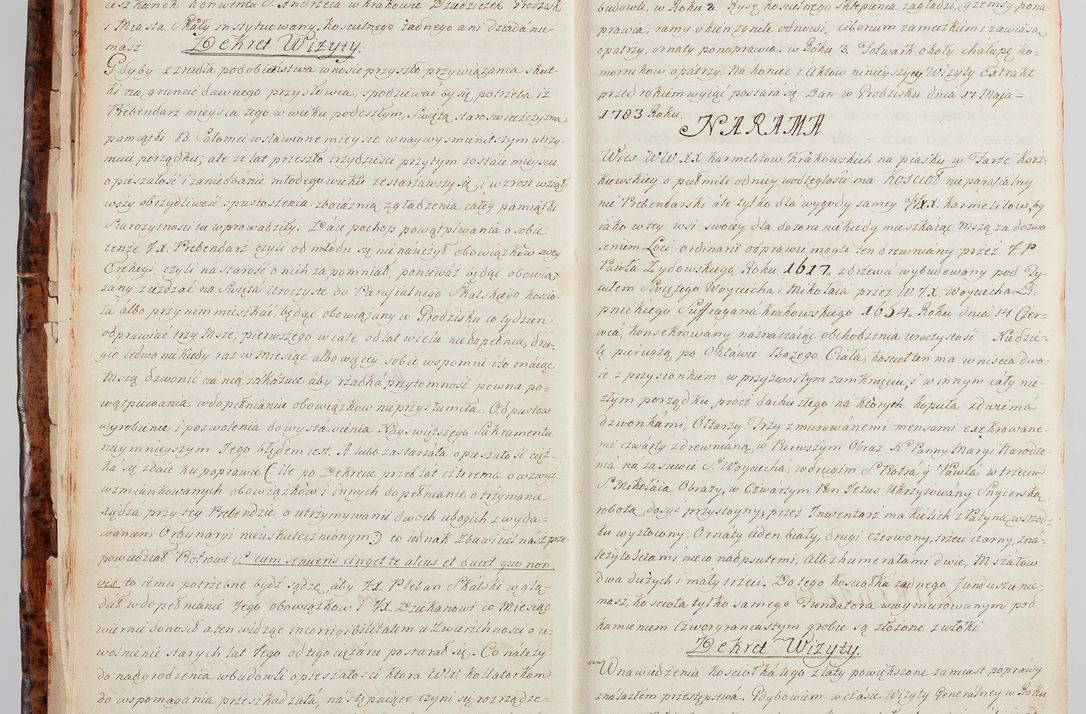 i Miasta Skały instytuowany, kościelnego żadnego ani dziada nie
masz
Dekret Wizyty.
Gdyby z źrzódła podobieństwa wnosić przyszło przywiązania skut
ki na gruncie dawnego przysłowia, spodziewać by się potrzeba iż
Prebendarz mieysca tego w wieku podeszłym, Świątą staroswiecczyzną
pamiątki B. Salomei wsławione mieysce w naywysmienitszym utrzy-
muie porządku; ale że lat przeszło trzydzieści przytym zostaie mieyscu
opieszałość i zaniedbanie młodego wieku zestarzawszy się i wzrost wziąć-
wszy obrzydliwość spustoszenia zboiaźnią zgładzenia całey pamiątki
Starożytności tu wprowadziły. Daie pochop powątpiwania o sobie
tenże JX. Prebendarz czyli od młodu się nie nauczył obowiązkow swey
Erekcyi, czyli na starość o nich zapomniał, ponieważ będąc obowią-
zany zieżdzać na Święta Uroczyste do Parafialnego Skalskiego kościo-
ła albo przynim mieszkać, będąc obowiązany w Grodzisku co tydzień
odprawiać trzy Msze, pierwszego w cale od lat wielu niedopełnia, dru-
gie ledwo niekiedy raz w Miesiąc albo więcey sobie wspomni i to maiąc
Mszą dzwonić na nią zakazuie aby rzadka przytomność pewna po-
wątpiewania w dopełnianie obowiązkow nieprzystumiła. Odpustow
wyrobienie i pozwolenia do wystawienia Nayświętszego Sakramentu
naymnieyszym Jego błędem iest. A lubo zastarzała opuszałość cięż-
ka się zdaie ku poprawie (ile po Dekrecie przed lat czterema o wzwyż
wzmiankowanych obowiązków i innych dopełnianie o trzymanie
Xiędza przy tey Prebendzie, o utrzymywanie dwoch ubogich z wyda-
waniem Ordynaryi nieuskutecznionym) co iednak Zbawiciel nasz prze-
powiedział Piotrowi cum senueris cinget te alius et ducet quo non
vis to iemu potrzebne bydź sądzę, aby JX. Pleban Skalski wglą-
dał w dopełnianie Jego obowiązkow i JX. Dziekanowi co Miesiąc
wiernie donosił a ten widząc incorrigibilitatem u Zwierzchności o u-
wolnienie starych lat Jego od tego ciężaru postarał się. Co należy
do nadgrodzenia w budowli opieszałości ktora Wiel. Kollatorkom
do wspomagania przeszkadzała, następuiące czyni się rozrządze-
budowli. w Roku 2. Rysę kościelnego sklepienia zagładzi, Gzemsy pona-
prawia, ramy okien zgniłe odnowi, Ciborium zameczkiem i zawiasą
opatrzy, ornaty ponaprawia. w Roku 3. Folwark około chałupę ko-
mornikow opatrzy. Na koniec z Aktow ninieyszey Wizyty Extrakt
przed rokiem wyiąć postara się Dan w Grodzisku dnia 17 Maja
1783 Roku.
NARAMA
Wieś WW. XX. Karmelitow Krakowskich na piasku w Farze Korz
kiewskiey o pułmili od niey wodległości ma Kościoł nieparafialny
nie Prebendarski ale tylko dla wygody samey WXX. Karmelitow, by
iako w tey wsi swoiey dla dozoru niekiedy mieszkaiąc Mszą za dozwo
leniem Loci ordinarii odprawić mogli ten drewniany przez J. P.
Pawła Żydowskiego Roku 1617 z drzewa wybudowany pod Ty-
tułem Świętego Woyciecha i Mikołaia przez W. JX. Woyciecha Li-
pnickiego Suffragana Krakowskiego 1654. Roku dnia 14 Czer-
wca, konsekrowany naznaczaiąc obchodzenia uroczystość Niedzie-
lę pierwszą po Oktawie Bożego Ciała, kościoł ten ma wniścia dwo-
ie z przysionkiem w przyzwoitym zamknięciu, i w innym cały nie-
złym porządku procz dachu złego na ktorych kopuła z dwiema
dzwonkami, Ołtarzy Trzy z murowanemi mensami exekrowane-
mi czwarty z drewnianą, w Pierwszym Obraz N. Panny Maryi Narodze-
nia na zasuwie S. Woyciecha, w drugim S. Piotra y Pawła w trzecim
S. Mikołaia Obrazy, w Czwartym Pan Jezus Ukrzyżowany Snycerską
robotą dosyć przystoyny, przez Inwentarz ma kielich z Patyną, wsrod-
ku wyzłocony, Ornaty ieden biały, drugi czerwony, trzeci czarny, zna-
leżytościami nieco nadpsutemi, Alb z humerałami dwie, Mszałow
dwa dużych i mały trzeci. Do tego kosciołka żadnego funduszu nie-
masz, kościoła tylko samego Fundatora w wymurowanym pod
kamieniem Czworgraniastym grobie są złożone zwłoki
Dekret Wizyty.
W nawiedzeniu Kościołka tego Laty powiększone zamiast poprawy
znalazłem przestępstwa. Gdybowiem w czasie Wizyty Generalney w Roku